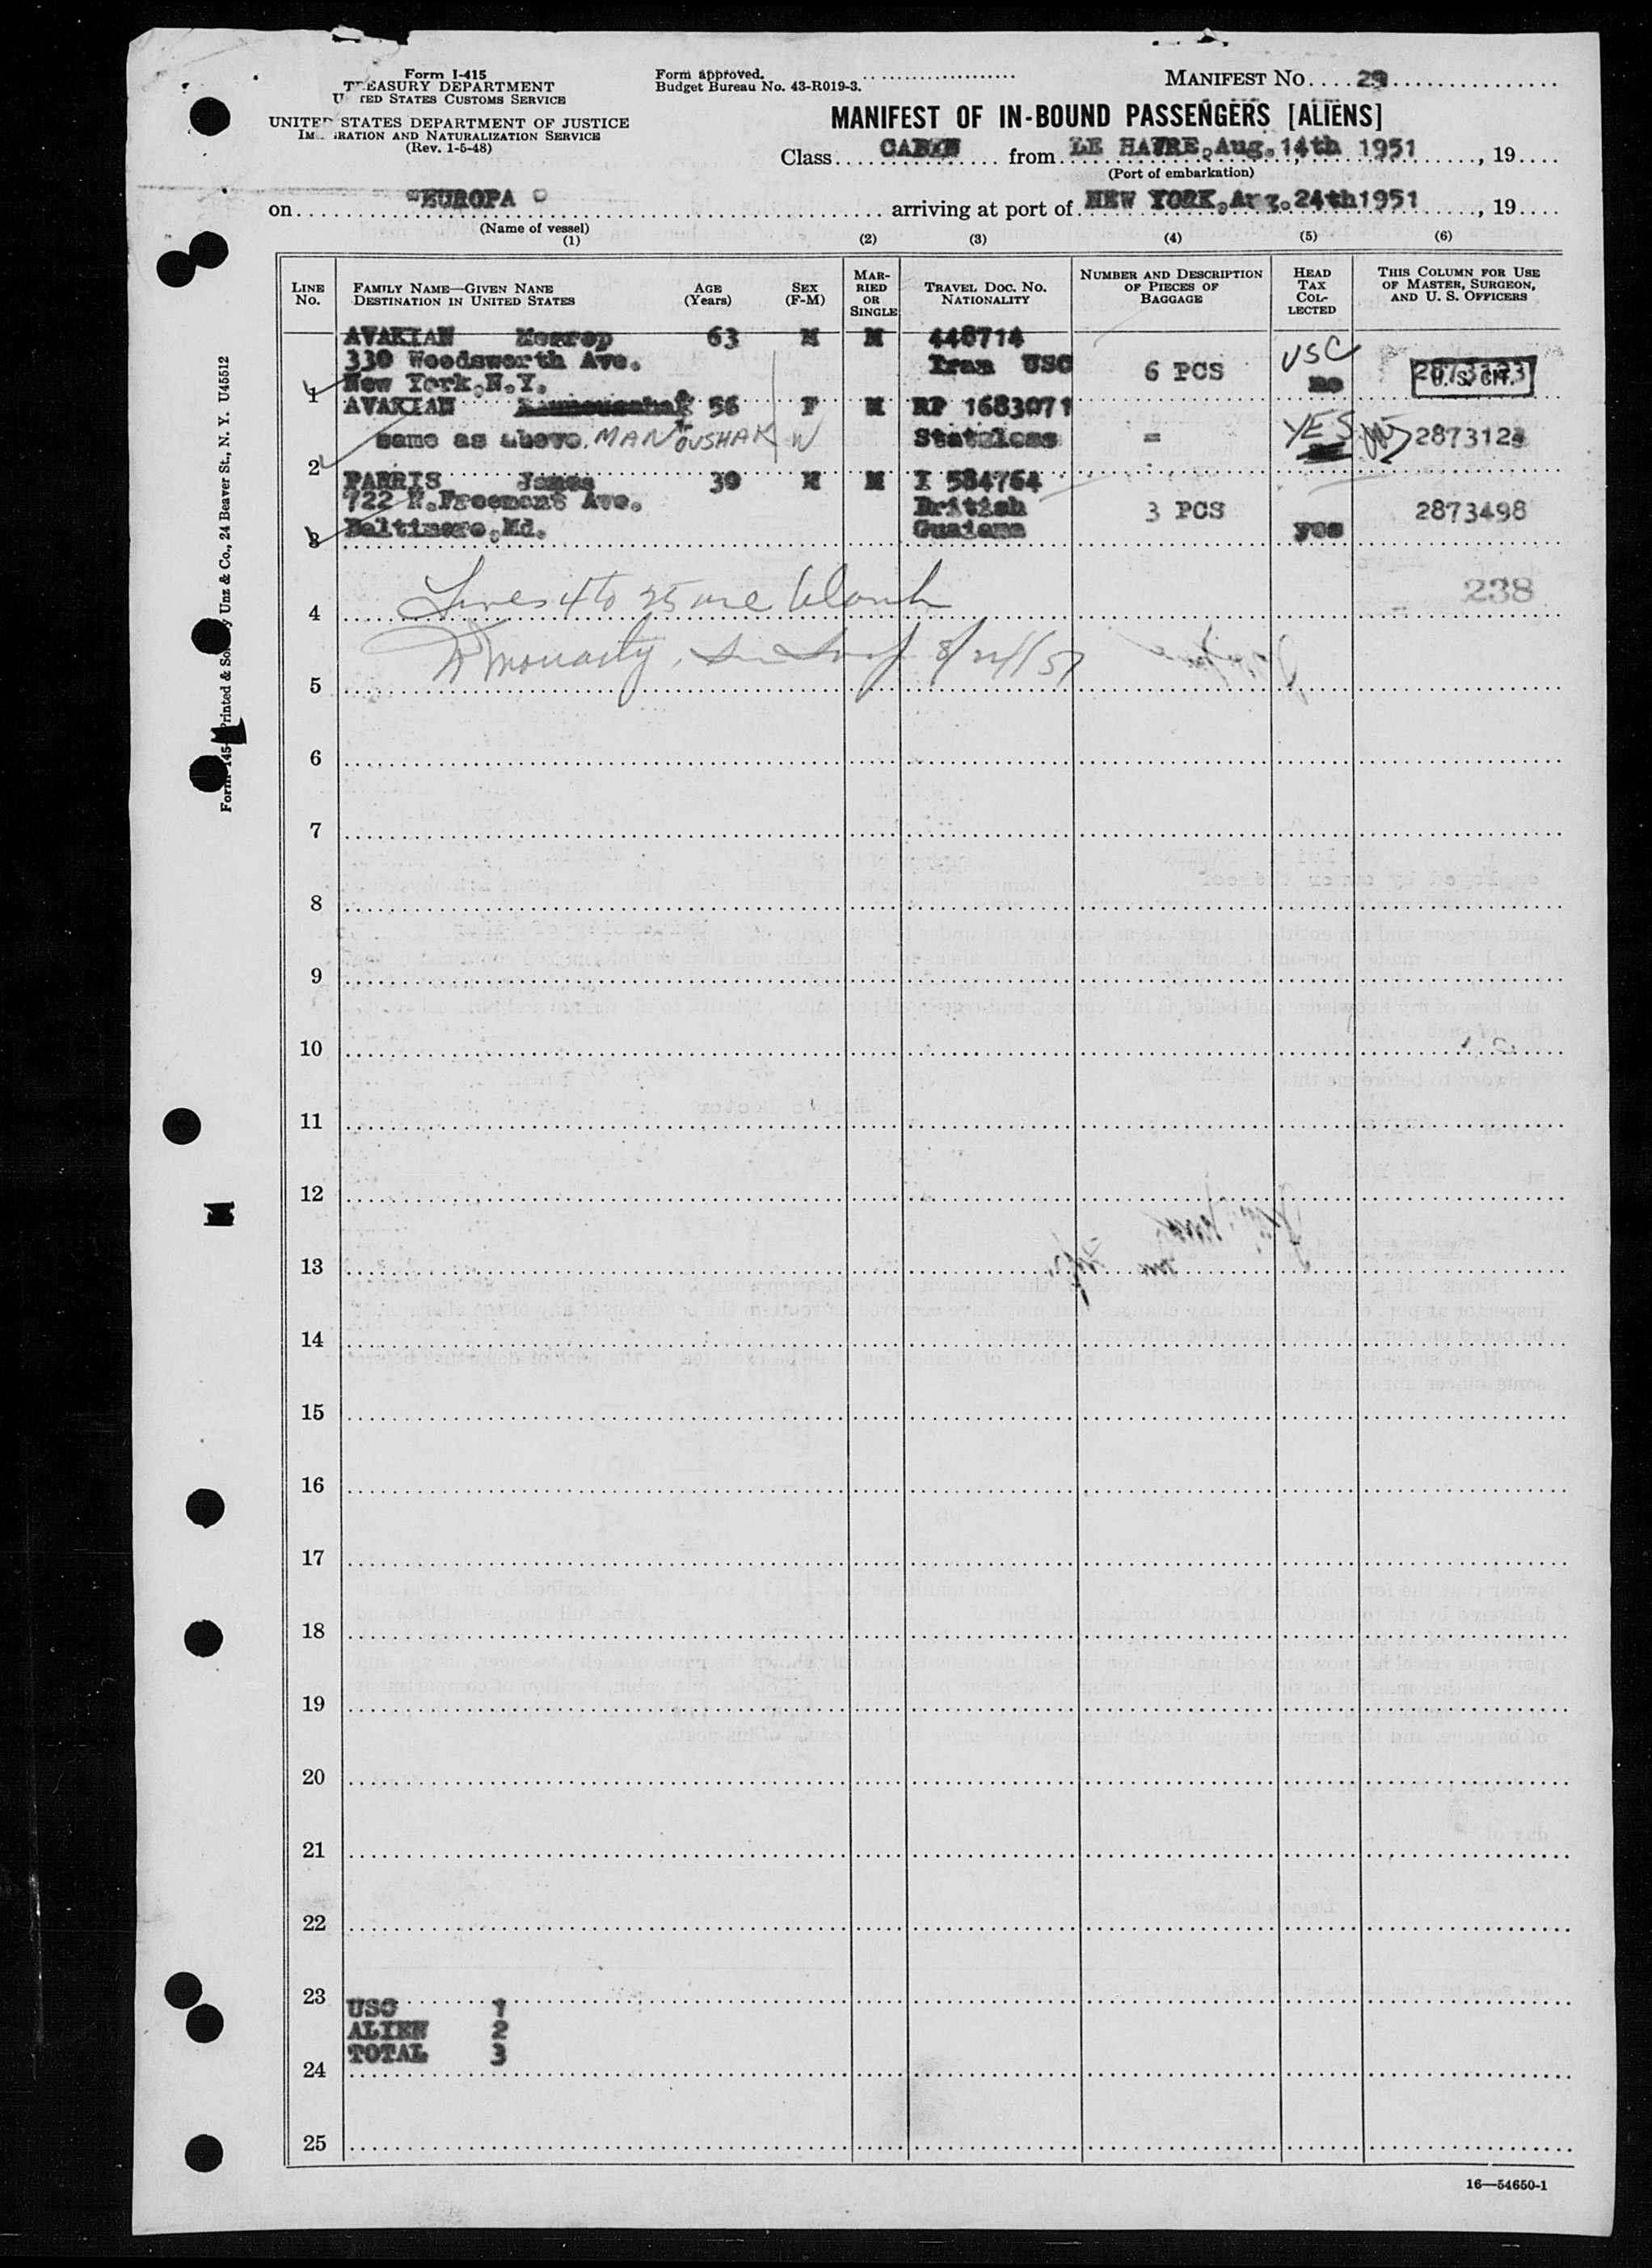 Form I-415
TREASURY DEPARTMENT
UNITED STATES CUSTOMS SERVICE
UNITED STATES DEPARTMENT OF JUSTICE
IMMIGRATION AND NATURALIZATION SERVICE
(Rev. 1-5-48)
Form approved.
Budget Bureau No. 43-R019-3.
MANIFEST NO. 29
MANIFEST OF IN-BOUND PASSENGERS [ALIENS]
Class CABIN from LE HAVRE, Aug. 14th 1951, 19
(Port of embarkation)
on "EUROPA" arriving at port of NEW YORK, Aug. 24th 1951, 19
(Name of vessel)
(1) (2) (3) (4) (5) (6)
LINE NO.
FAMILY NAME—GIVEN NANE
DESTINATION IN UNITED STATES
AGE (Years)
SEX (F-M)
MARRIED OR SINGLE
TRAVEL DOC. NO. NATIONALITY
NUMBER AND DESCRIPTION OF PIECES OF BAGGAGE
HEAD TAX COLLECTED
THIS COLUMN FOR USE OF MASTER, SURGEON, AND U. S. OFFICERS
AVAKIAN Mesrop 63 M M 448714
330 Woodsworth Ave. Iran USC 6 PCS USC
1 New York, N.Y. no U. S. CIT.
AVAKIAN 56 F M RP 1683071
same as above. MANOUSHAK W Stateless = YES 2873124
2
PARRIS James 39 M M I 584764
722 N. Freemont Ave. British 3 PCS 2873498
3 Baltimore, Md. Guiana yes
238
4 Lines 4 to 25 are blank
5 8/24/51
6
7
8
9
10
11
12
13
14
15
16
17
18
19
20
21
22
23
USC 1
ALIEN 2
TOTAL 3
24
25
16—54650-1
Printed & Sold by Unz & Co., 24 Beaver St., N. Y. U45512